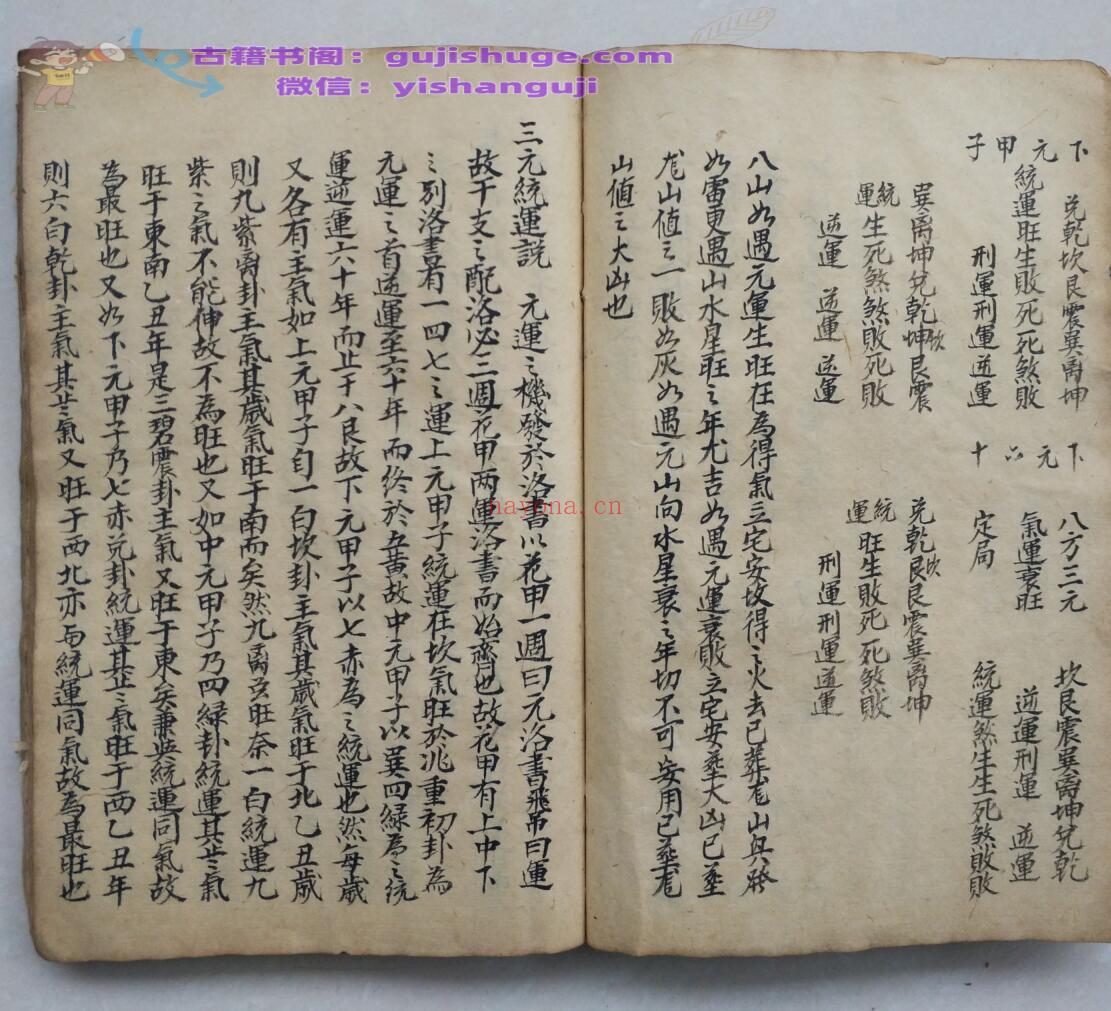 古籍书阁：gujishuge.com
微信：yishanguji
nayona.cn
下元甲子
兌乾坎艮震巽离坤
統運旺生敗死死煞敗
刑運刑運逆運
巽离坤兌乾坤坎艮震
統運生死煞煞敗死敗
逆運 逆運 逆運
下元六十
八方三元
氣運衰旺
定局
兌乾坎艮艮震巽离坤
統運旺生敗死死煞敗
刑運刑運逆運
坎艮震巽离坤兌乾
逆運刑運 逆運
統運煞生生死煞敗敗
八山如遇元運生旺在為得氣立宅安坟得之火去已葬龙山興發
如雷更遇山水星旺之年尤吉如遇元運衰敗立宅安葬大凶已葬
龙山值之一敗如灰如遇元山向水星衰之年切不可妄用已葬龙
山值之大凶也
三元統運説 元運之機發於洛書以花甲一週曰元洛書飛吊曰運
故干支之配洛必三週花甲两運洛書而始齊也故花甲有上中下
之别洛書有一四七之運上元甲子統運在坎氣旺於兆重初卦為
元運之首逆運至六十年而終於五黄故中元甲子以巽四緑為之统
運逆運六十年而止于八艮故下元甲子以七赤為之統運也然每歲
又各有主氣如上元甲子自一白坎卦主氣其歲氣旺于北乙丑歲
則九紫离卦主氣其歲氣旺于南而矣然九离雖旺奈一白統運九
紫之氣不能伸故不為旺也又如中元甲子乃四緑卦統運其年氣
旺于東南乙丑年是三碧震卦主氣又旺于東矣兼與統運同氣故
為最旺也又如下元甲子乃七赤兌卦統運其年之氣旺于西乙丑年
則六白乾卦主氣其年氣又旺于西北亦與統運同氣故為最旺也